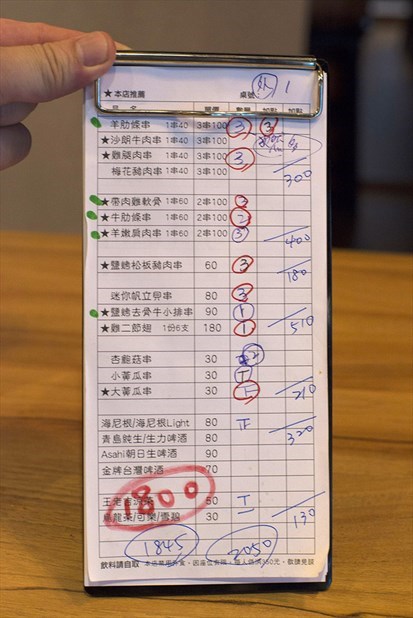 ★本店推薦 桌號 外 1
品名 單價 數量 加點 加點
羊肋條串 1串40 3串100 3 3
★沙朗牛肉串 1串40 3串100
★雞腿肉串 1串40 3串100 3
梅花豬肉串 1串40 3串100 300
★帶肉雞軟骨 1串60 2串100 3
★牛肋條串 1串60 2串100 2
★羊嫩肩肉串 1串60 2串100 3 400
★鹽蔥松板豬肉串 60 3 180
迷你帆立貝串 80 3
★鹽蔥去骨牛小排串 90 1
★雞二節翅 1份6支 180 1 510
杏鮑菇串 30
小黃瓜串 30
★大黃瓜串 30 210
海尼根/海尼根Light 80 320
青島純生/生力啤酒 80
Asahi朝日生啤酒 90
金牌台灣啤酒 70
1800
30 130
1845 2050
飲料請自取